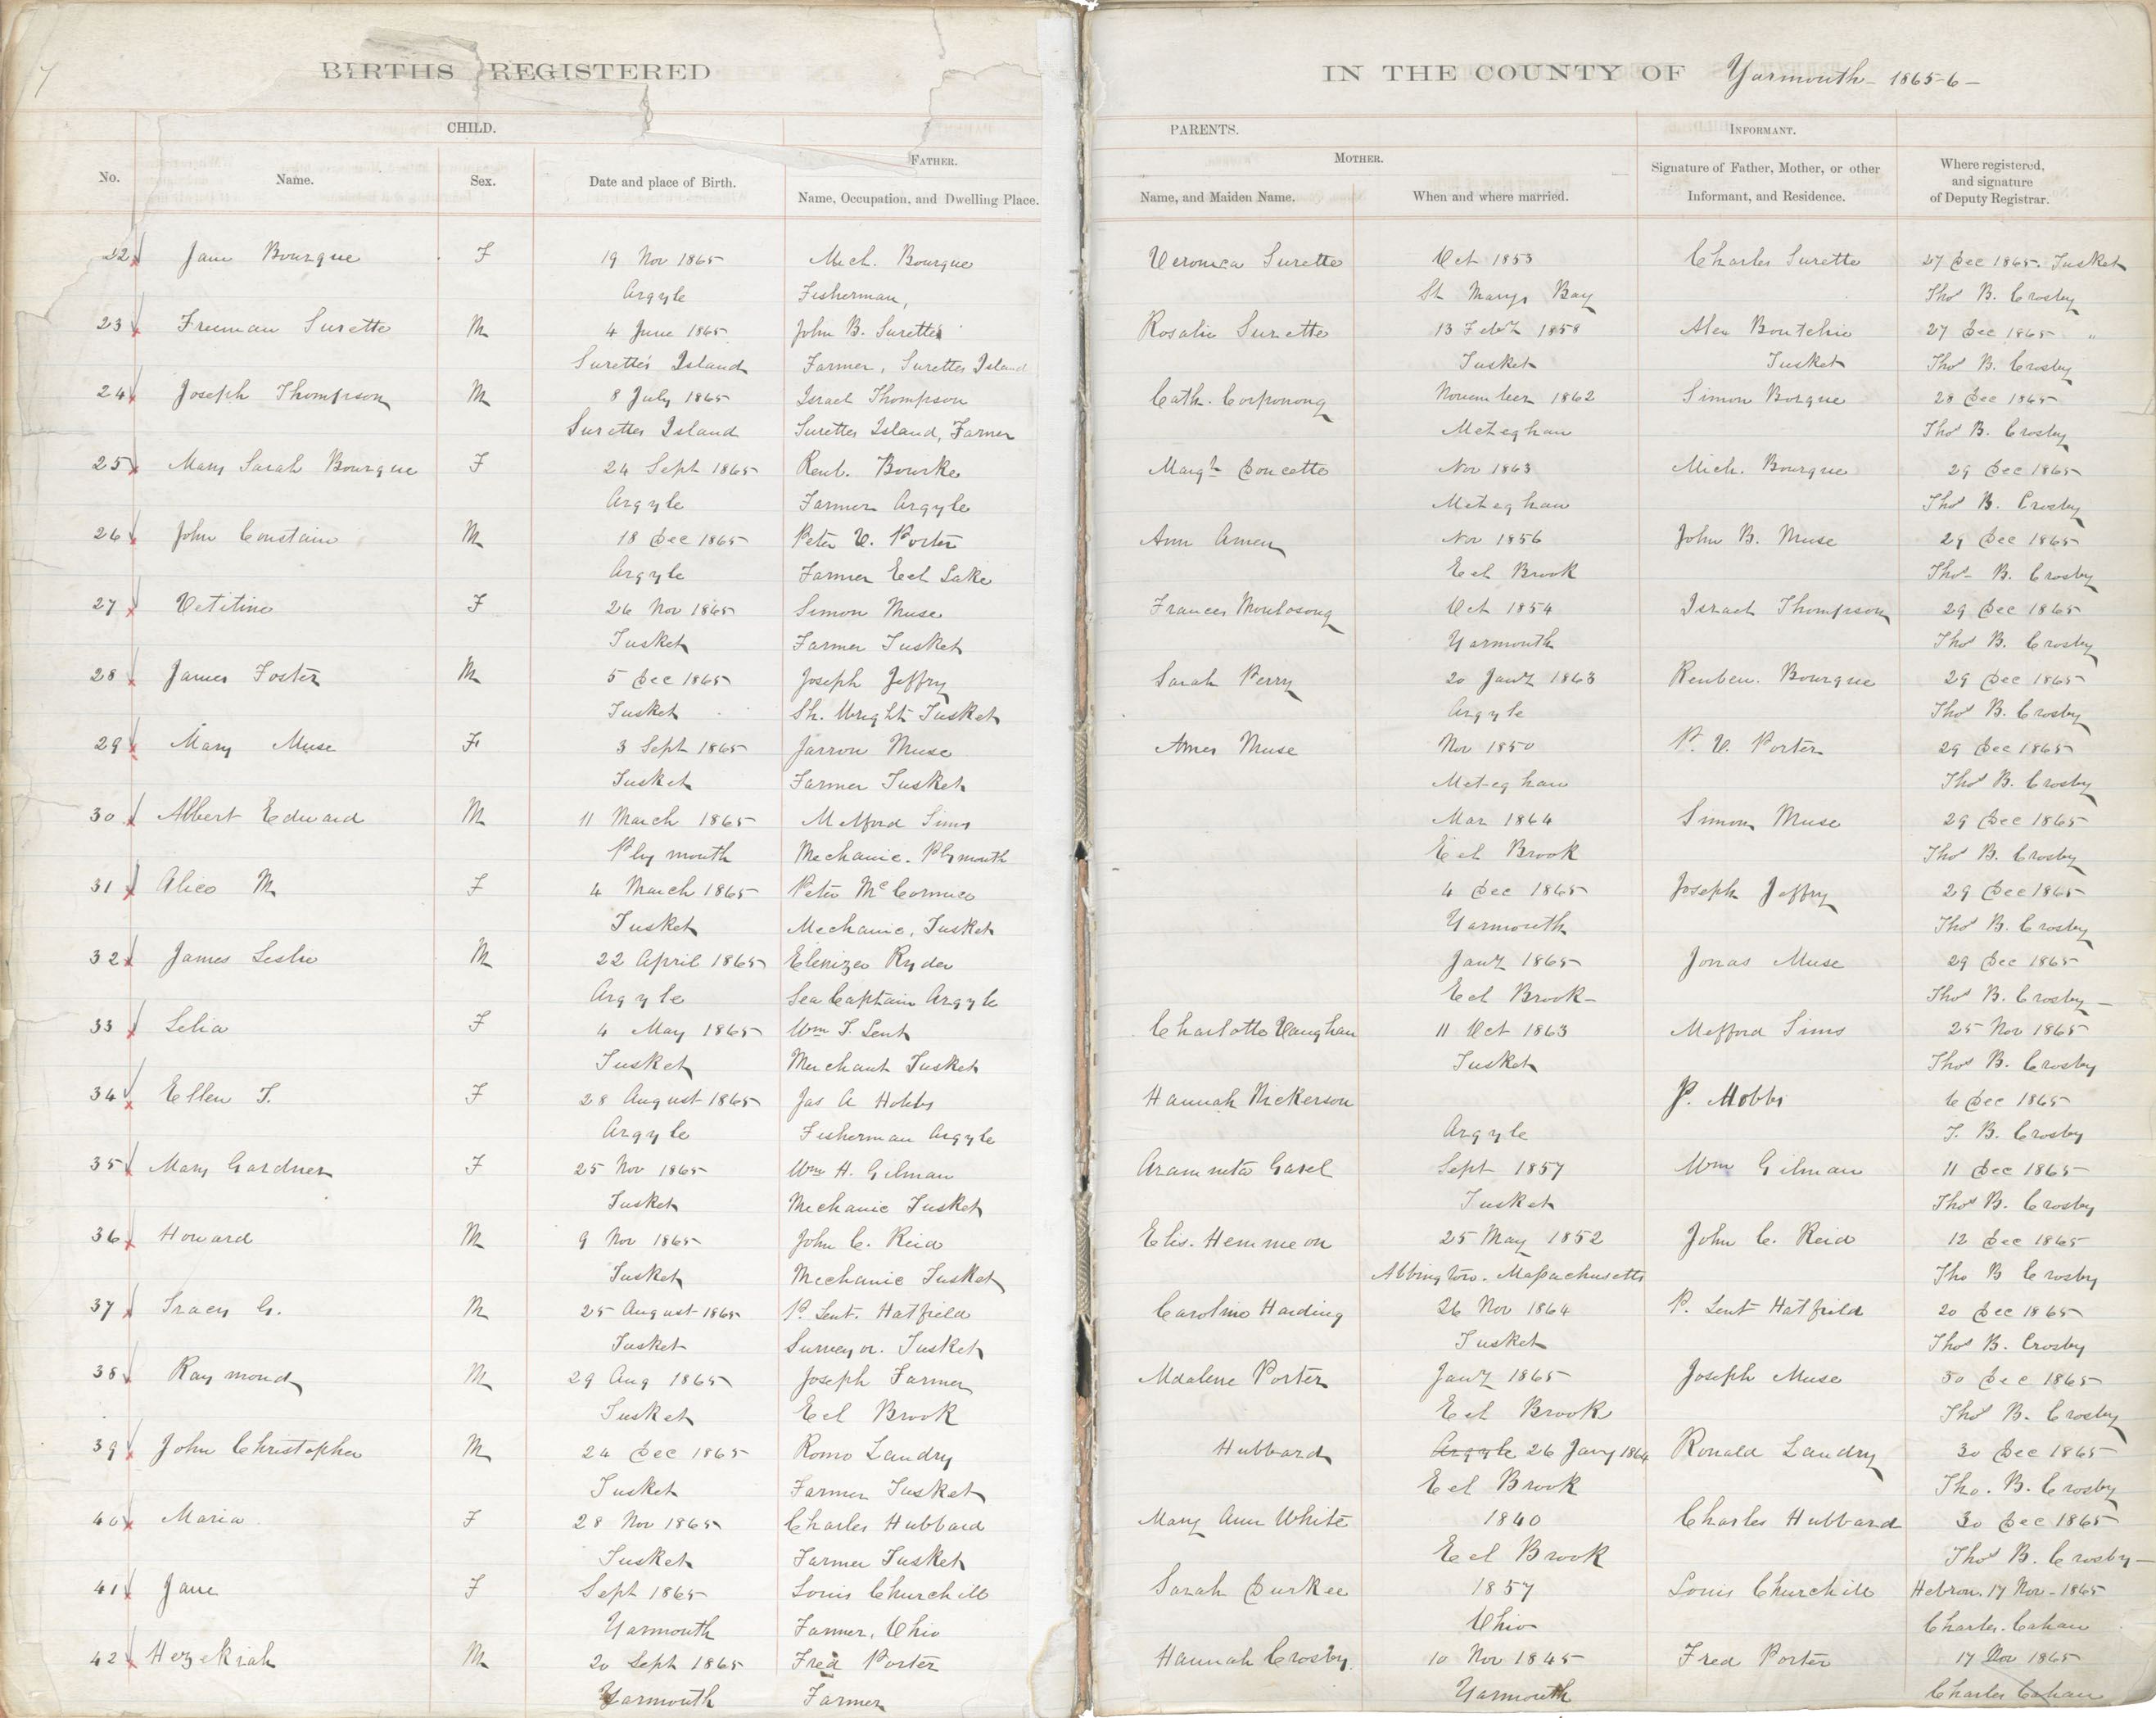 7
BIRTHS REGISTERED IN THE COUNTY OF Yarmouth - 1865-6 -
CHILD. PARENTS. INFORMANT.
No. Name. Sex. Date and place of Birth. FATHER. Name, Occupation, and Dwelling Place. MOTHER. Name, and Maiden Name. When and where married. Signature of Father, Mother, or other Informant, and Residence. Where registered, and signature of Deputy Registrar.
22 Jane Bourque F 19 Nov 1865 Mich. Bourque Veronica Surette Oct 1853 Charles Surette 27 Dec 1865. Tusket
Argyle Fisherman, St Marys Bay Thos B. Crosby
23 Freeman Surette M 4 June 1865 John B. Surette Rosalie Surette 13 Feby 1858 Alex Boutelie 27 Dec 1865 "
Surette's Island Farmer, Surettes Island Tusket Tusket Thos B. Crosby
24 Joseph Thompson M 8 July 1865 Israel Thompson Cath. Corporong November 1862 Simon Borque 28 Dec 1865
Surettes Island Surettes Island, Farmer Meteghan Thos B. Crosby
25 Mary Sarah Bourque F 24 Sept 1865 Reub. Bourke Margt Doucette Nov 1863 Mich. Bourque 29 Dec 1865
Argyle Farmer Argyle Meteghan Thos B. Crosby
26 John Constain M 18 Dec 1865 Peter V. Porter Ann Amen Nov 1856 John B. Muse 29 Dec 1865
Argyle Farmer Eel Lake Eel Brook Thos B. Crosby
27 Vetitine F 26 Nov 1865 Simon Muse Frances Moulosong Oct 1854 Israel Thompson 29 Dec 1865
Tusket Farmer Tusket Yarmouth Thos B. Crosby
28 James Foster M 5 Dec 1865 Joseph Jeffry Sarah Perry 20 Jany 1863 Reuben. Bourque 29 Dec 1865
Tusket Sh. Wright Tusket Argyle Thos B. Crosby
29 Mary Muse F 3 Sept 1865 Jarron Muse Ames Muse Nov 1850 P. V. Porter 29 Dec 1865
Tusket Farmer Tusket Meteghan Thos B. Crosby
30 Albert Edward M 11 March 1865 Melford Sims Mar 1864 Simon Muse 29 Dec 1865
Plymouth Mechanic. Plymouth Eel Brook Thos B. Crosby
31 Alice M F 4 March 1865 Peter McCormico 4 Dec 1865 Joseph Jeffry 29 Dec 1865
Tusket Mechanic, Tusket Yarmouth Thos B. Crosby
32 James Leslie M 22 April 1865 Ebenizer Ryder Jany 1865 Jonas Muse 29 Dec 1865
Argyle Sea Captain Argyle Eel Brook - Thos B. Crosby -
33 Lelia F 4 May 1865 Wm T. Lent Charlotte Vaughan 11 Oct 1863 Mefford Sims 25 Nov 1865
Tusket Merchant Tusket Tusket Thos B. Crosby
34 Ellen T. F 28 August 1865 Jas A Hobbs Hannah Nickerson P. Hobbs 6 Dec 1865
Argyle Fisherman Argyle Argyle T. B. Crosby
35 Mary Gardner F 25 Nov 1865 Wm H. Gilman Araminta Gavel Sept 1857 Wm Gilman 11 Dec 1865
Tusket Mechanic Tusket Tusket Thos B. Crosby
36 Howard M 9 Nov 1865 John C. Reid Elis. Hemmeon 25 May 1852 John C. Reid 12 Dec 1865
Tusket Mechanic Tusket Abbington. Massachusetts Tho B Crosby
37 Tracy G. M 25 August 1865 P. Lent. Hatfield Caroline Harding 26 Nov 1864 P. Lent Hatfield 20 Dec 1865
Tusket Surveyor. Tusket Tusket Thos B. Crosby
38 Raymond M 29 Aug 1865 Joseph Farmer Madlene Porter Jany 1865 Joseph Muse 30 Dec 1865
Tusket Eel Brook Eel Brook Thos B. Crosby
39 John Christopher M 24 Dec 1865 Romo Landry Hubbard Argyle 26 Jany 1864 Ronald Landry 30 Dec 1865
Tusket Farmer Tusket Eel Brook Tho. B. Crosby
40 Maria F 28 Nov 1865 Charles Hubbard Mary Ann White 1840 Charles Hubbard 30 Dec 1865
Tusket Farmer Tusket Eel Brook Thos B. Crosby -
41 Jane F Sept 1865 Louis Churchill Sarah Durkee 1857 Louis Churchill Hebron. 17 Nov - 1865
Yarmouth Farmer, Ohio Ohio Charles. Cahan
42 Hezekiah M 20 Sept 1865 Fred Porter Hannah Crosby. 10 Nov 1845 Fred Porter 17 Nov 1865
Yarmouth Farmer Yarmouth Charles Cahan